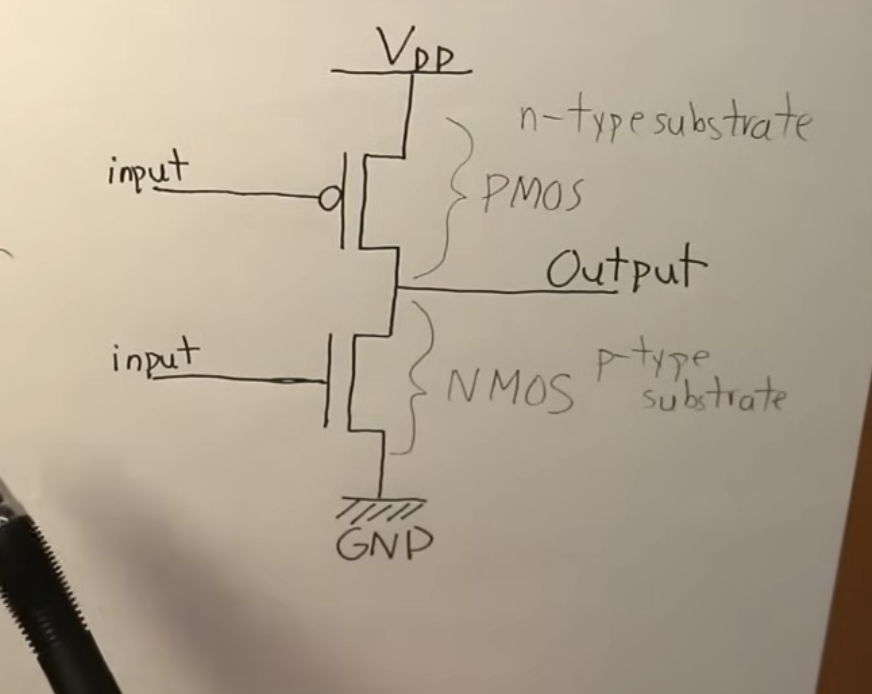 VDD
n-type substrate
input
PMOS
Output
input
NMOS
p-type
substrate
GND